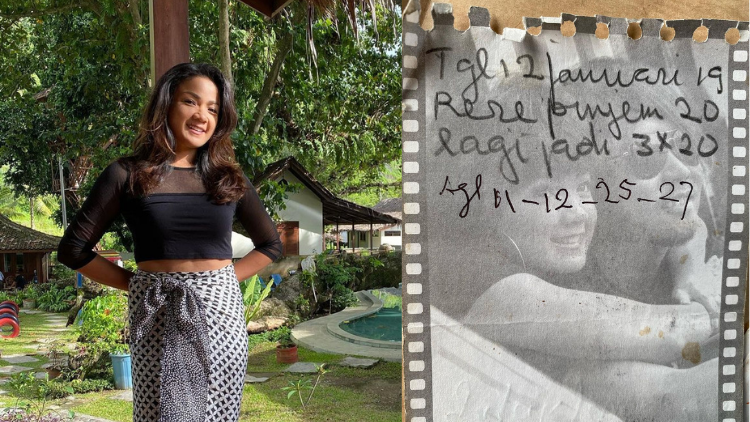 Tgl 12 januari 19
Rere pinyem 20
lagi jadi 3x20
tgl 11-12-25-27